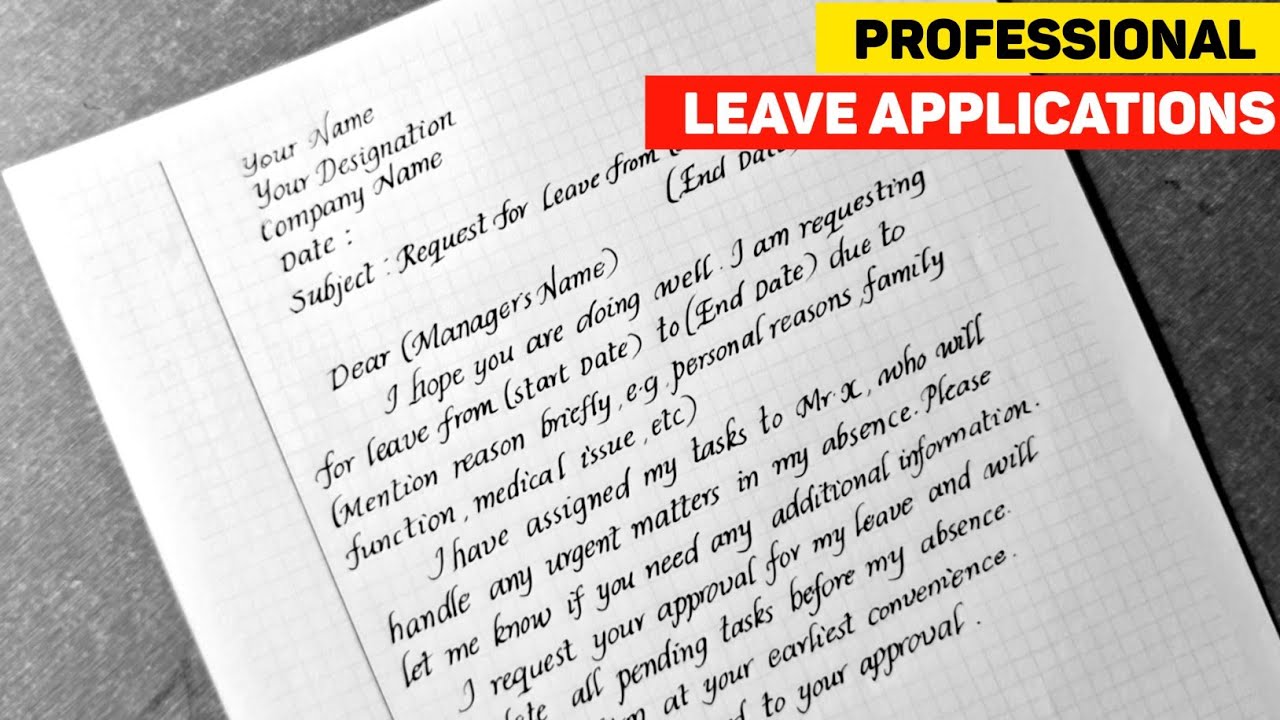 PROFESSIONAL
LEAVE APPLICATIONS
Your Name
Your Designation
Company Name
Date :
Subject : Request for Leave from
(End Date
Dear (Managers Name)
I hope you are doing well. I am requesting
for leave from (start Date) to (End Date) due to
(Mention reason briefly, e.g. personal reasons, family
function, medical issue, etc)
I have assigned my tasks to Mr. x, who will
handle any urgent matters in my absence. Please
let me know if you need any additional information.
I request your approval for my leave and will
all pending tasks before my absence.
at your earliest convenience.
to your approval.